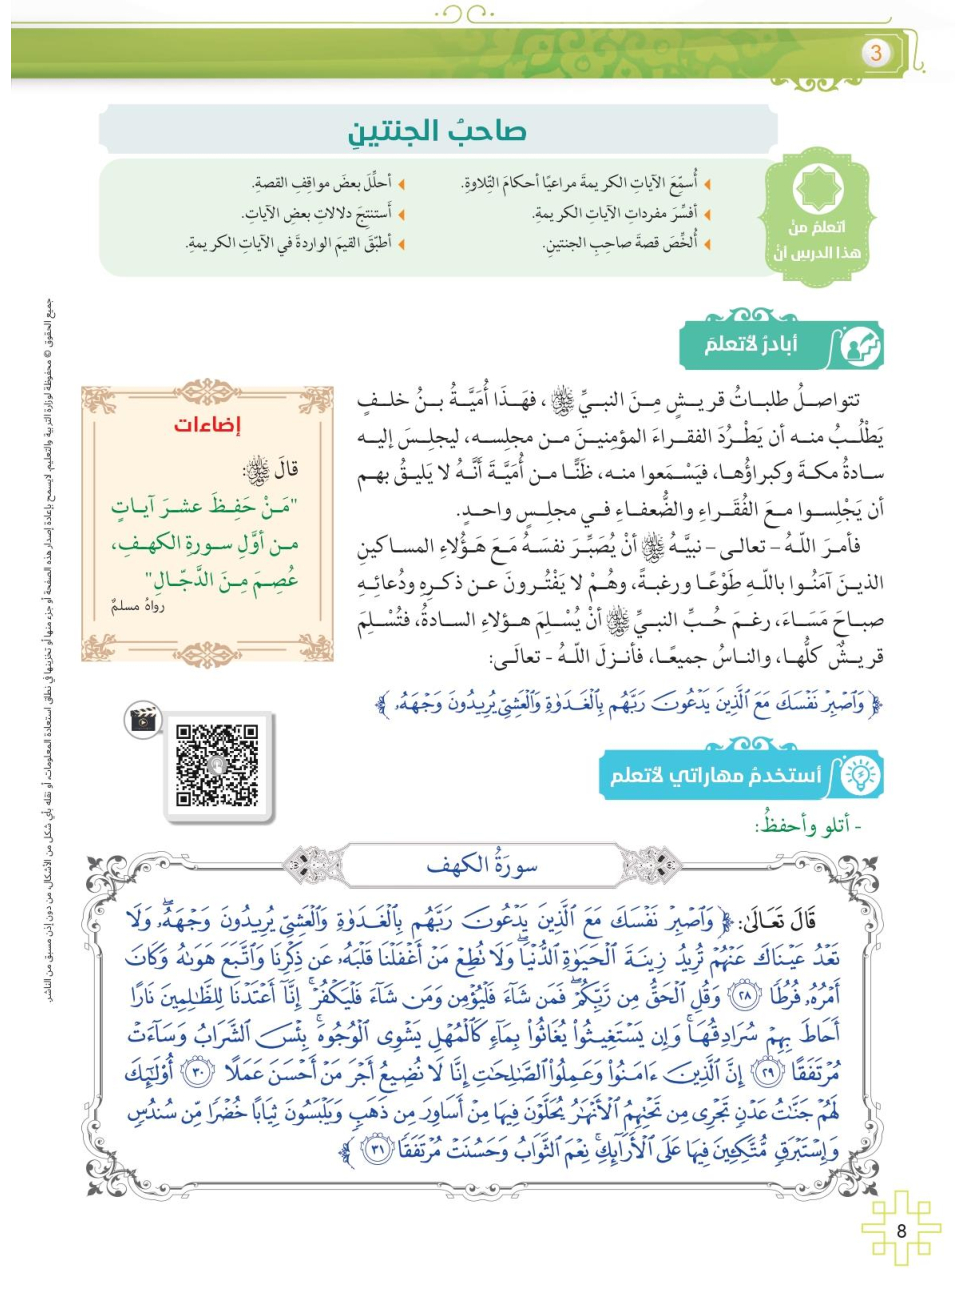 3
صاحبُ الجنتينِ
أتعلمُ منْ
هذا الدرسِ أنْ
أُسمِّعَ الآياتِ الكريمةَ مراعيًا أحكامَ التِّلاوةِ.
أفسِّرَ مفرداتِ الآياتِ الكريمةِ.
ألخِّصَ قصةَ صاحبِ الجنتينِ.
أحلِّلَ بعضَ مواقفِ القصةِ.
أَستنتِجَ دلالاتِ بعضِ الآياتِ.
أطبِّقَ القيمَ الواردةَ في الآياتِ الكريمةِ.
أبادرُ لأتعلمَ
تتواصلُ طلباتُ قريشٍ مِنَ النبيِّ ﷺ، فهَذَا أُمَيَّةُ بنُ خلفٍ
يَطْلُبُ منه أن يَطْرُدَ الفقراءَ المؤمنِينَ من مجلسِه، ليجلسَ إليه
سادةُ مكةَ وكبراؤُها، فيَسْمَعوا منه، ظَنًّا من أُمَيَّةَ أنَّهُ لا يَليقُ بهم
أن يَجْلِسوا معَ الفُقَراءِ والضُّعفاءِ في مجلسٍ واحدٍ.
فأمرَ اللهُ - تعالى - نبيَّهُ ﷺ أنْ يُصَبِّرَ نفسَهُ مَعَ هَؤُلاءِ المساكينِ
الذينَ آمَنُوا باللهِ طَوْعًا ورغبةً، وهُمْ لا يَفْتُرونَ عن ذكرِهِ ودُعائِهِ
صباحَ مَسَاءَ، رغمَ حُبِّ النبيِّ ﷺ أنْ يُسْلِمَ هؤلاءِ السادةُ، فتُسْلِمَ
قريشٌ كلُّها، والناسُ جميعًا، فأنزلَ اللهُ - تعالَى:
﴿ وَٱصْبِرْ نَفْسَكَ مَعَ ٱلَّذِينَ يَدْعُونَ رَبَّهُم بِٱلْغَدَوٰةِ وَٱلْعَشِىِّ يُرِيدُونَ وَجْهَهُۥ ﴾
إضاءات
قالَ ﷺ:
"مَنْ حَفِظَ عشرَ آياتٍ
من أوَّلِ سورةِ الكهفِ،
عُصِمَ مِنَ الدَّجّالِ"
رواهُ مسلمٌ
أستخدمُ مهاراتي لأتعلم
- أتلو وأحفظُ:
سورَةُ الكهف
قَالَ تَعَالَىٰ: ﴿ وَٱصْبِرْ نَفْسَكَ مَعَ ٱلَّذِينَ يَدْعُونَ رَبَّهُم بِٱلْغَدَوٰةِ وَٱلْعَشِىِّ يُرِيدُونَ وَجْهَهُۥ ۖ وَلَا
تَعْدُ عَيْنَاكَ عَنْهُمْ تُرِيدُ زِينَةَ ٱلْحَيَوٰةِ ٱلدُّنْيَا ۖ وَلَا تُطِعْ مَنْ أَغْفَلْنَا قَلْبَهُۥ عَن ذِكْرِنَا وَٱتَّبَعَ هَوَىٰهُ وَكَانَ
أَمْرُهُۥ فُرُطًا ﴿٢٨﴾ وَقُلِ ٱلْحَقُّ مِن رَّبِّكُمْ ۖ فَمَن شَآءَ فَلْيُؤْمِن وَمَن شَآءَ فَلْيَكْفُرْ ۚ إِنَّآ أَعْتَدْنَا لِلظَّٰلِمِينَ نَارًا
أَحَاطَ بِهِمْ سُرَادِقُهَا ۚ وَإِن يَسْتَغِيثُوا۟ يُغَاثُوا۟ بِمَآءٍ كَٱلْمُهْلِ يَشْوِى ٱلْوُجُوهَ ۚ بِئْسَ ٱلشَّرَابُ وَسَآءَتْ
مُرْتَفَقًا ﴿٢٩﴾ إِنَّ ٱلَّذِينَ ءَامَنُوا۟ وَعَمِلُوا۟ ٱلصَّٰلِحَٰتِ إِنَّا لَا نُضِيعُ أَجْرَ مَنْ أَحْسَنَ عَمَلًا ﴿٣٠﴾ أُو۟لَٰٓئِكَ
لَهُمْ جَنَّٰتُ عَدْنٍ تَجْرِى مِن تَحْتِهِمُ ٱلْأَنْهَٰرُ يُحَلَّوْنَ فِيهَا مِنْ أَسَاوِرَ مِن ذَهَبٍ وَيَلْبَسُونَ ثِيَابًا خُضْرًا مِّن سُندُسٍ
وَإِسْتَبْرَقٍ مُّتَّكِـِٔينَ فِيهَا عَلَى ٱلْأَرَآئِكِ ۚ نِعْمَ ٱلثَّوَابُ وَحَسُنَتْ مُرْتَفَقًا ﴿٣١﴾ ﴾
جميع الحقوق © محفوظة لوزارة التربية والتعليم. لايسمح بإعادة إصدار هذه الصفحة أو جزء منها أو تخزينها في نطاق استعادة المعلومات، أو نقله بأي شكل من الأشكال، من دون إذن مسبق من الناشر.
8